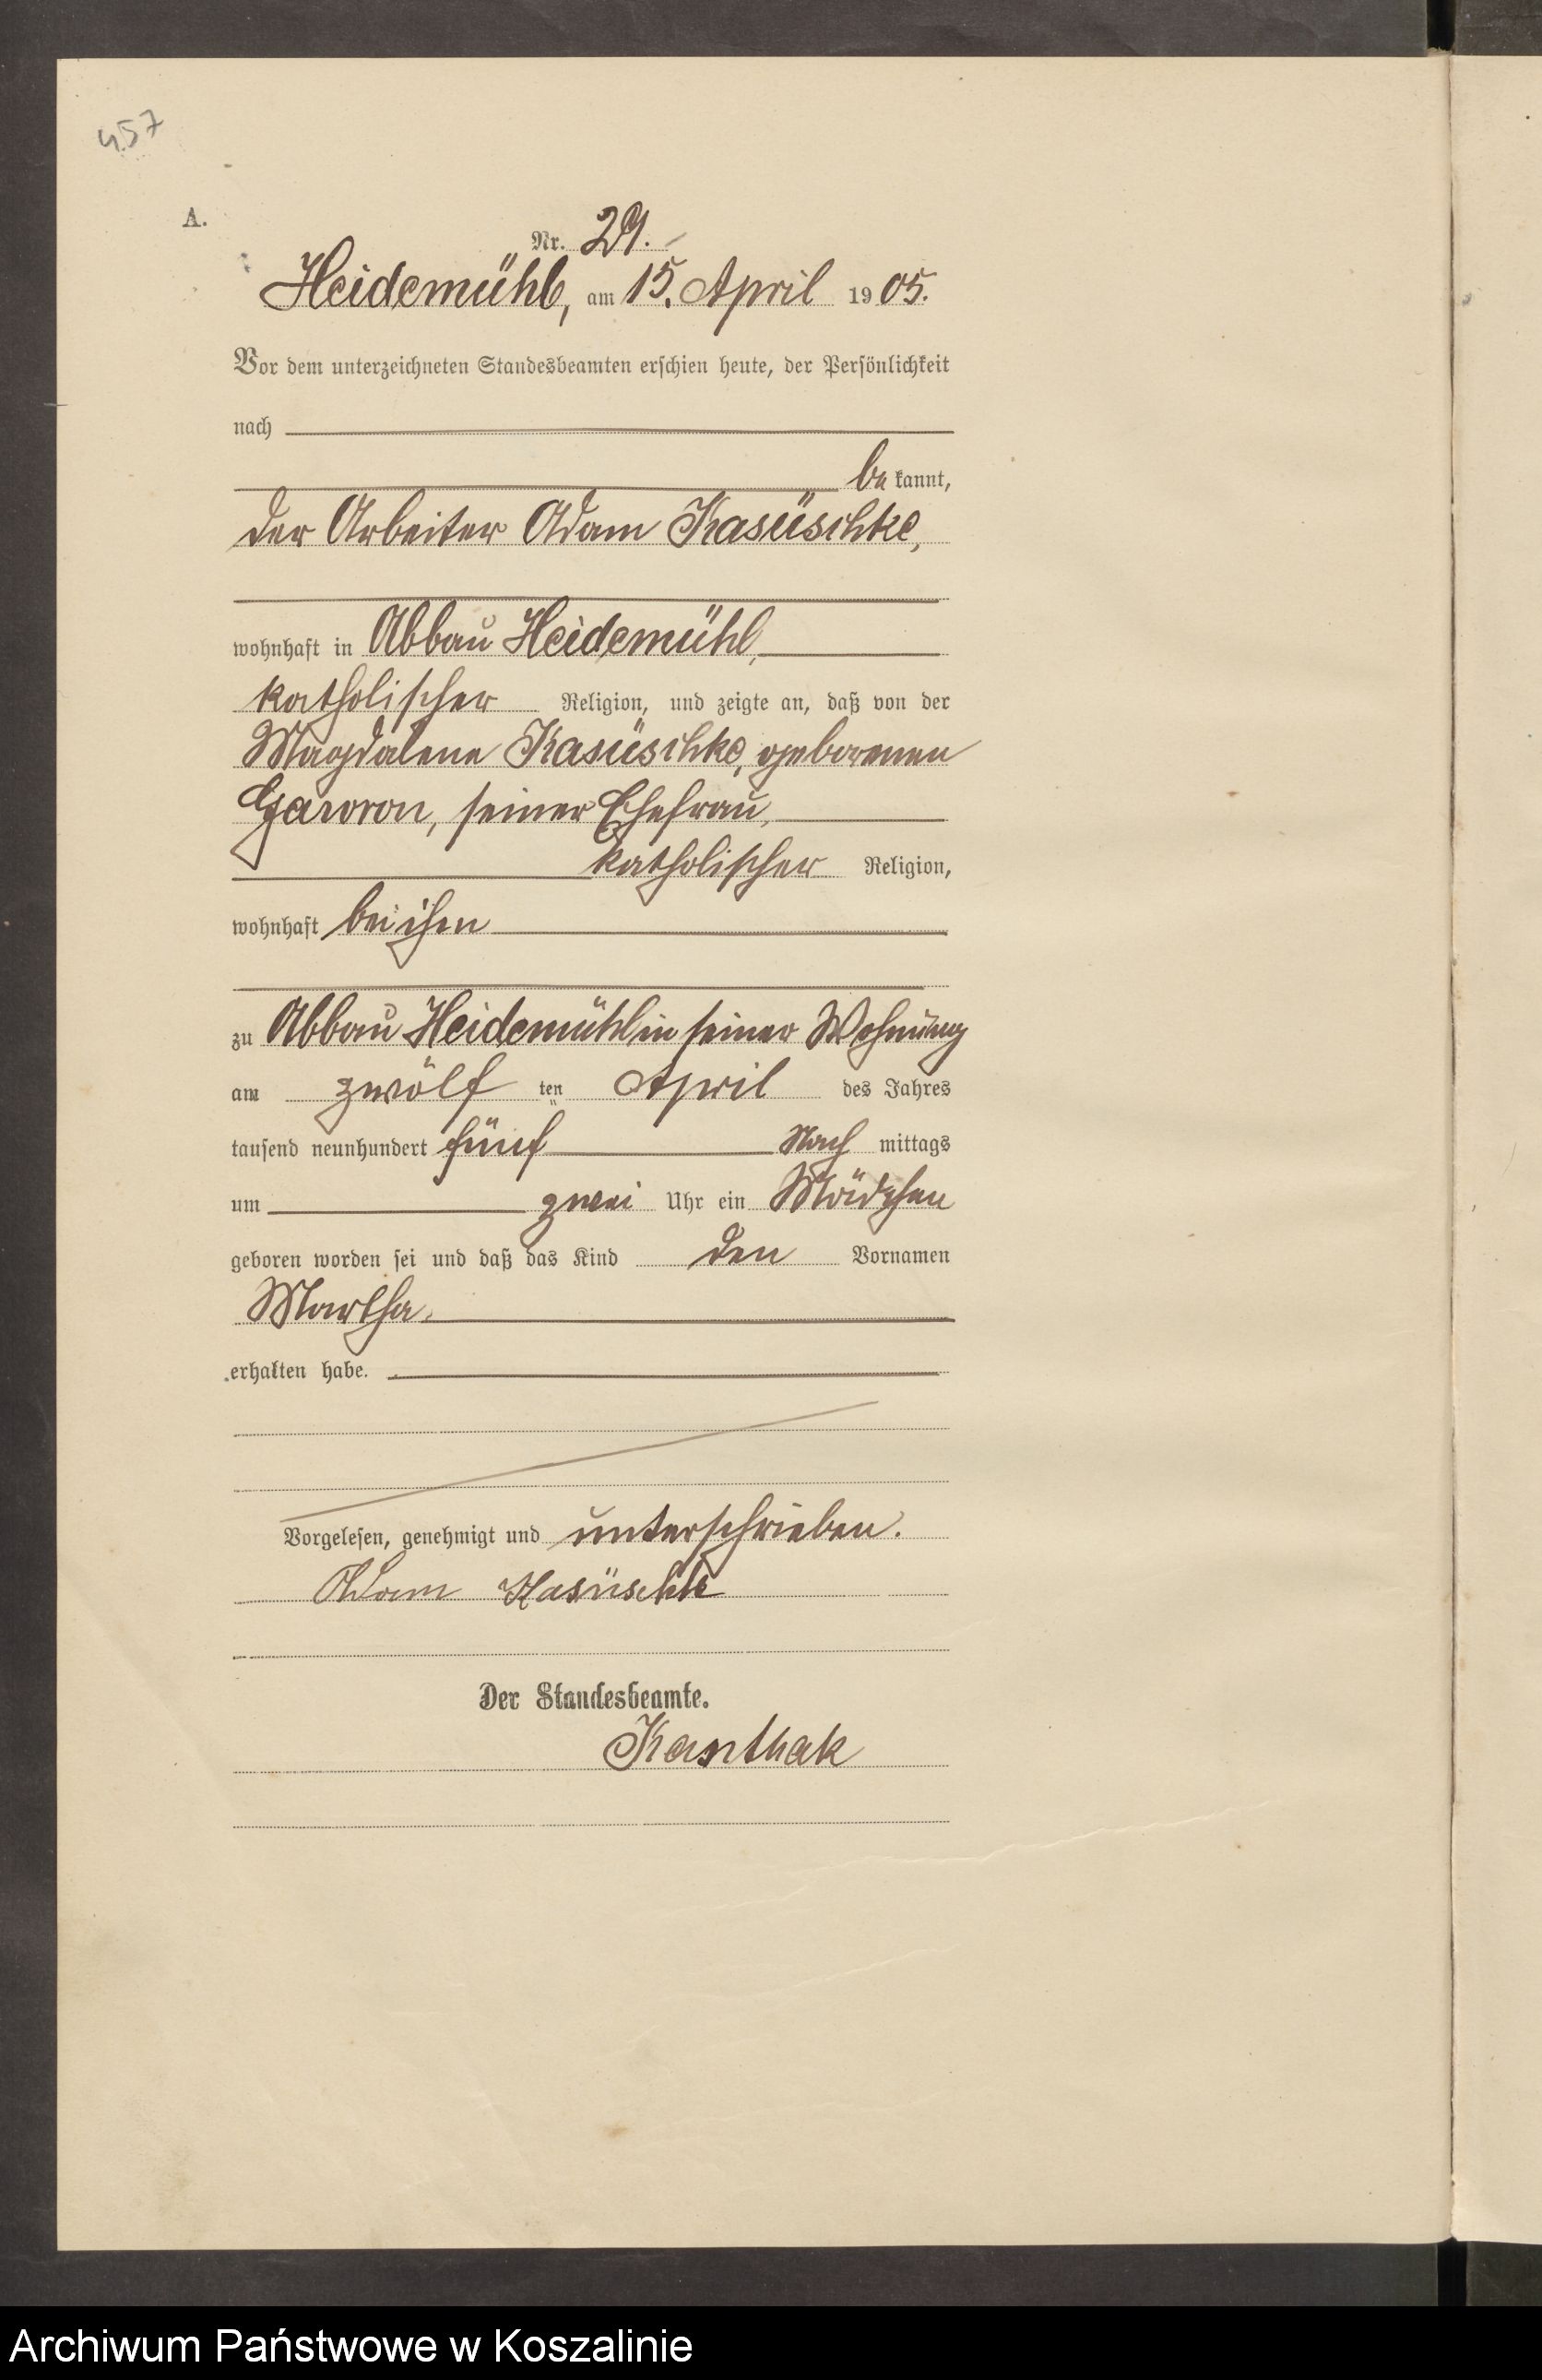 457
A.
Nr. 29.
Heidemühl, am 15. April 1905.
Vor dem unterzeichneten Standesbeamten erschien heute, der Persönlichkeit
nach
be kannt,
der Arbeiter Adam Kasüschke,
wohnhaft in Abbau Heidemühl,
katholischer Religion, und zeigte an, daß von der
Magdalene Kasüschke, geborenen
seiner Ehefrau,
katholischer Religion,
wohnhaft bei ihm
zu Abbau Heidemühl in seiner Wohnung
am zwölf ten April des Jahres
tausend neunhundert fünf Nach mittags
um zwei Uhr ein Mädchen
geboren worden sei und daß das Kind den Vornamen
Martha.
erhalten habe.
Vorgelesen, genehmigt und unterschrieben.
Adam Kasüschke
Der Standesbeamte.
Kanthak
Archiwum Państwowe w Koszalinie